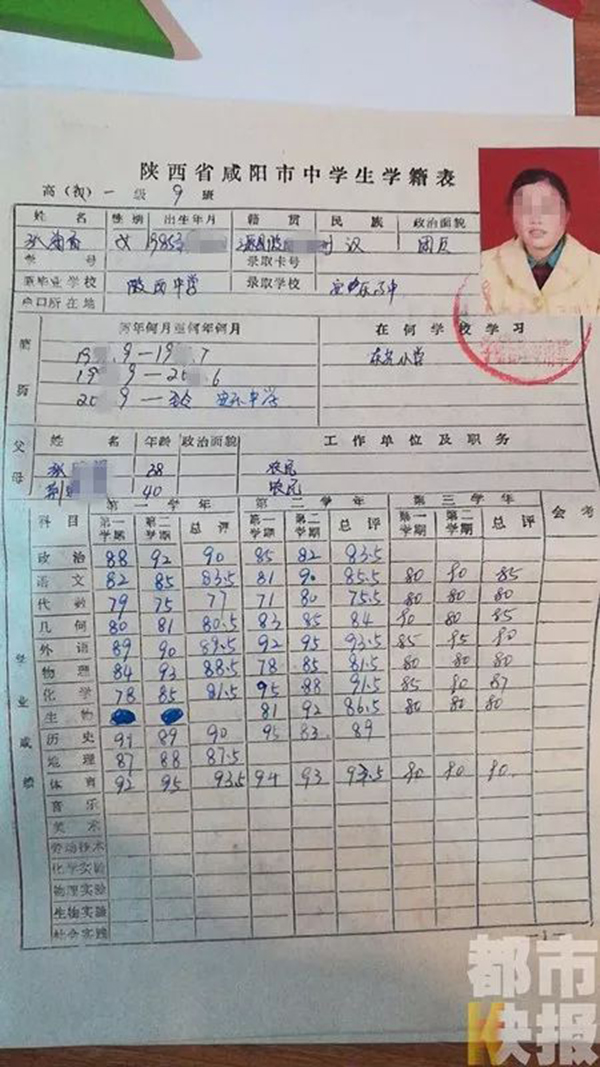 陕西省咸阳市中学生学籍表
高(初)一级9班
姓名 性别 出生年月 籍贯 民族 政治面貌
女 1985 汉 团员
学号 录取卡号
原毕业学校 陵西中学 录取学校
户口所在地
简历 何年何月至何年何月 在何学校学习
19 .9—19 .7 小学
19 9—20 .6
20 9—至今 中学
父母 姓名 年龄 政治面貌 工作单位及职务
38 农民
40 农民
科目 第一学年 第二学年 第三学年 会考
第一学期 第二学期 总评 第一学期 第二学期 总评 第一学期 第二学期 总评
毕业成绩
政治 88 92 90 85 82 83.5
语文 82 85 83.5 81 90 85.5 80 90 85
代数 79 75 77 71 80 75.5 80 80 80
几何 80 81 80.5 83 85 84 90 80 85
外语 89 90 89.5 92 95 93.5 85 95 90
物理 84 93 88.5 78 85 81.5 80 80 80
化学 78 85 81.5 95 88 91.5 85 90 87
生物 81 92 86.5 80 80 80
历史 91 89 90 95 83 89
地理 87 88 87.5
体育 92 95 93.5 94 93 93.5 90 90 90
音乐
美术
劳动技术
化学实验
物理实验
生物实验
社会实践
—1—
都市快报